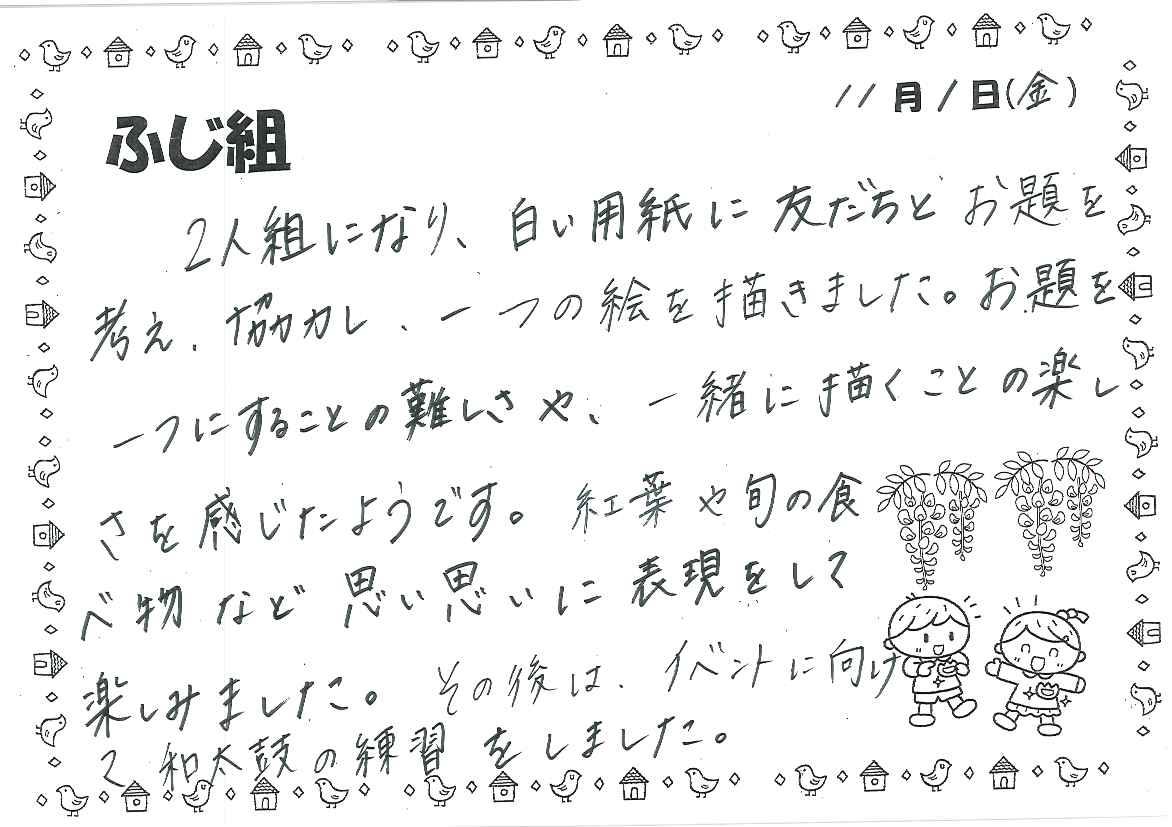 11月1日(金)
ふじ組
2人組になり、白い用紙に友だちとお題を
考え、協力し、一つの絵を描きました。お題を
一つにすることの難しさや、一緒に描くことの楽し
さを感じたようです。紅葉や旬の食
べ物など思い思いに表現をして
楽しみました。その後は、イベントに向け
て和太鼓の練習をしました。